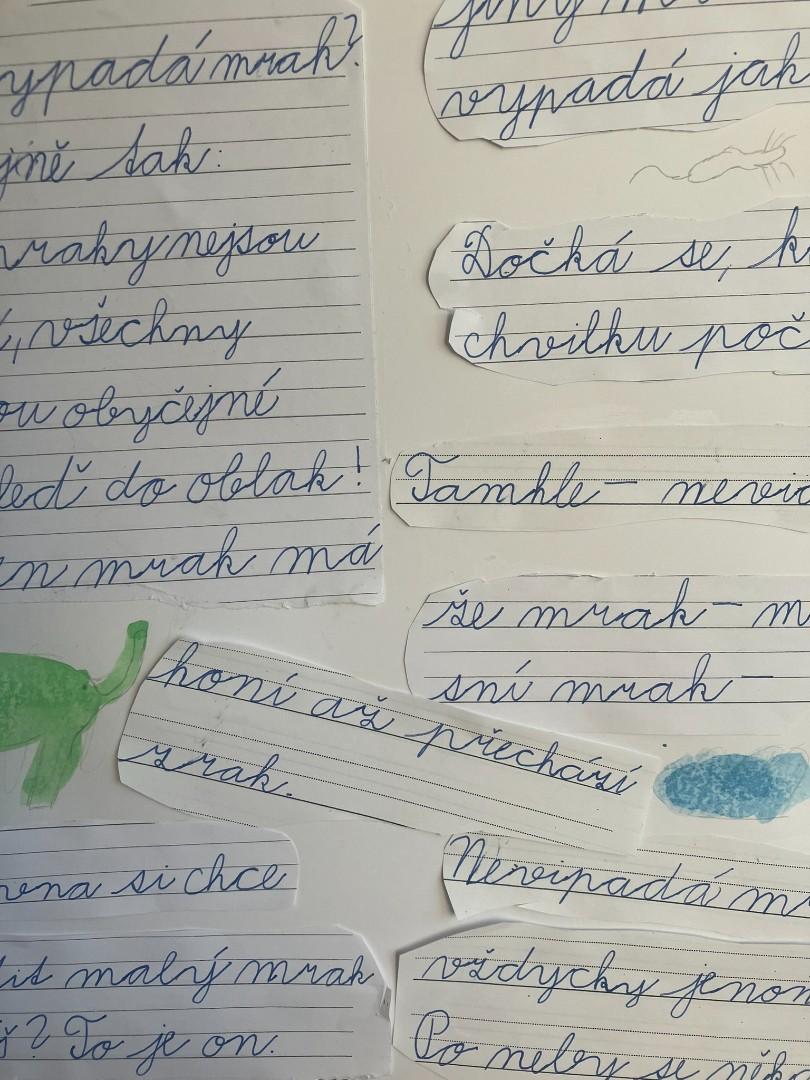 ypadá mrak?
jně tak:
mraky nejsou
všechny
ou obyčejné
leď do oblak!
en mrak má
honí až přechází
zrak.
vna si chce
lit malý mrak
To je on.
vypadá jak
Dočká se, k
chvilku poč
Tamhle – nevid
že mrak – m
sní mrak –
Nevipadá m
vždycky jenom
Po neby se nik